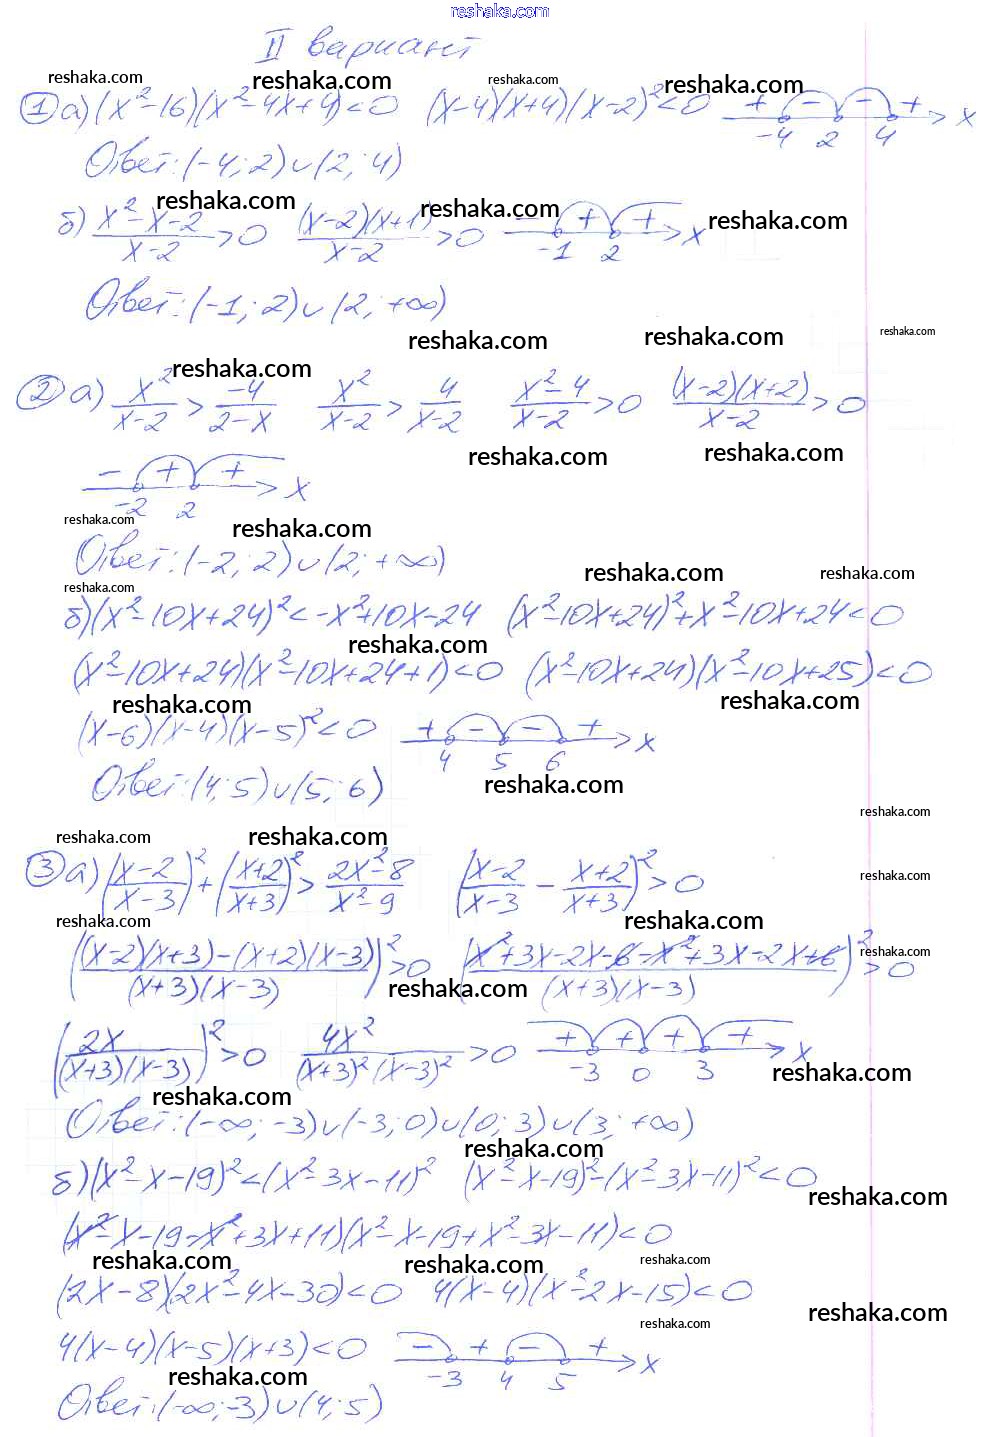 reshaka.com
II вариант
reshaka.com reshaka.com reshaka.com reshaka.com
① а) (x²-16)(x²-4x+4)<0 (x-4)(x+4)(x-2)²<0 + - - + x
-4 2 4
Ответ: (-4; 2)∪(2; 4)
reshaka.com reshaka.com reshaka.com
б) (x²-x-2)/(x-2)>0 ((x-2)(x+1))/(x-2)>0 - + + x
-1 2
Ответ: (-1; 2)∪(2; +∞)
reshaka.com reshaka.com reshaka.com
reshaka.com
② а) x²/(x-2) > -4/(2-x) x²/(x-2) > 4/(x-2) (x²-4)/(x-2)>0 ((x-2)(x+2))/(x-2)>0
reshaka.com reshaka.com
- + + x
-2 2
reshaka.com reshaka.com
Ответ: (-2; 2)∪(2; +∞)
reshaka.com reshaka.com reshaka.com
б) (x²-10x+24)²<-x²+10x-24 (x²-10x+24)²+x²-10x+24<0
reshaka.com
(x²-10x+24)(x²-10x+24+1)<0 (x²-10x+24)(x²-10x+25)<0
reshaka.com reshaka.com
(x-6)(x-4)(x-5)²<0 + - - + x
4 5 6
Ответ: (4; 5)∪(5; 6)
reshaka.com
reshaka.com
reshaka.com reshaka.com
③ а) ((x-2)/(x-3))²+((x+2)/(x+3))²>(2x²-8)/(x²-9) ((x-2)/(x-3) - (x+2)/(x+3))²>0
reshaka.com
reshaka.com reshaka.com
(((x-2)(x+3)-(x+2)(x-3))/((x+3)(x-3)))²>0 ((x²+3x-2x-6-x²+3x-2x+6)/((x+3)(x-3)))²>0
reshaka.com reshaka.com
(2x/((x+3)(x-3)))²>0 4x²/((x+3)²(x-3)²)>0 + + + + x
-3 0 3
reshaka.com reshaka.com
Ответ: (-∞; -3)∪(-3; 0)∪(0; 3)∪(3; +∞)
reshaka.com
б) (x²-x-19)²<(x²-3x-11)² (x²-x-19)²-(x²-3x-11)²<0
reshaka.com
(x²-x-19-x²+3x+11)(x²-x-19+x²-3x-11)<0
reshaka.com reshaka.com reshaka.com
(2x-8)(2x²-4x-30)<0 4(x-4)(x²-2x-15)<0
reshaka.com
reshaka.com
4(x-4)(x-5)(x+3)<0 - + - + x
-3 4 5
reshaka.com
Ответ: (-∞; -3)∪(4; 5)